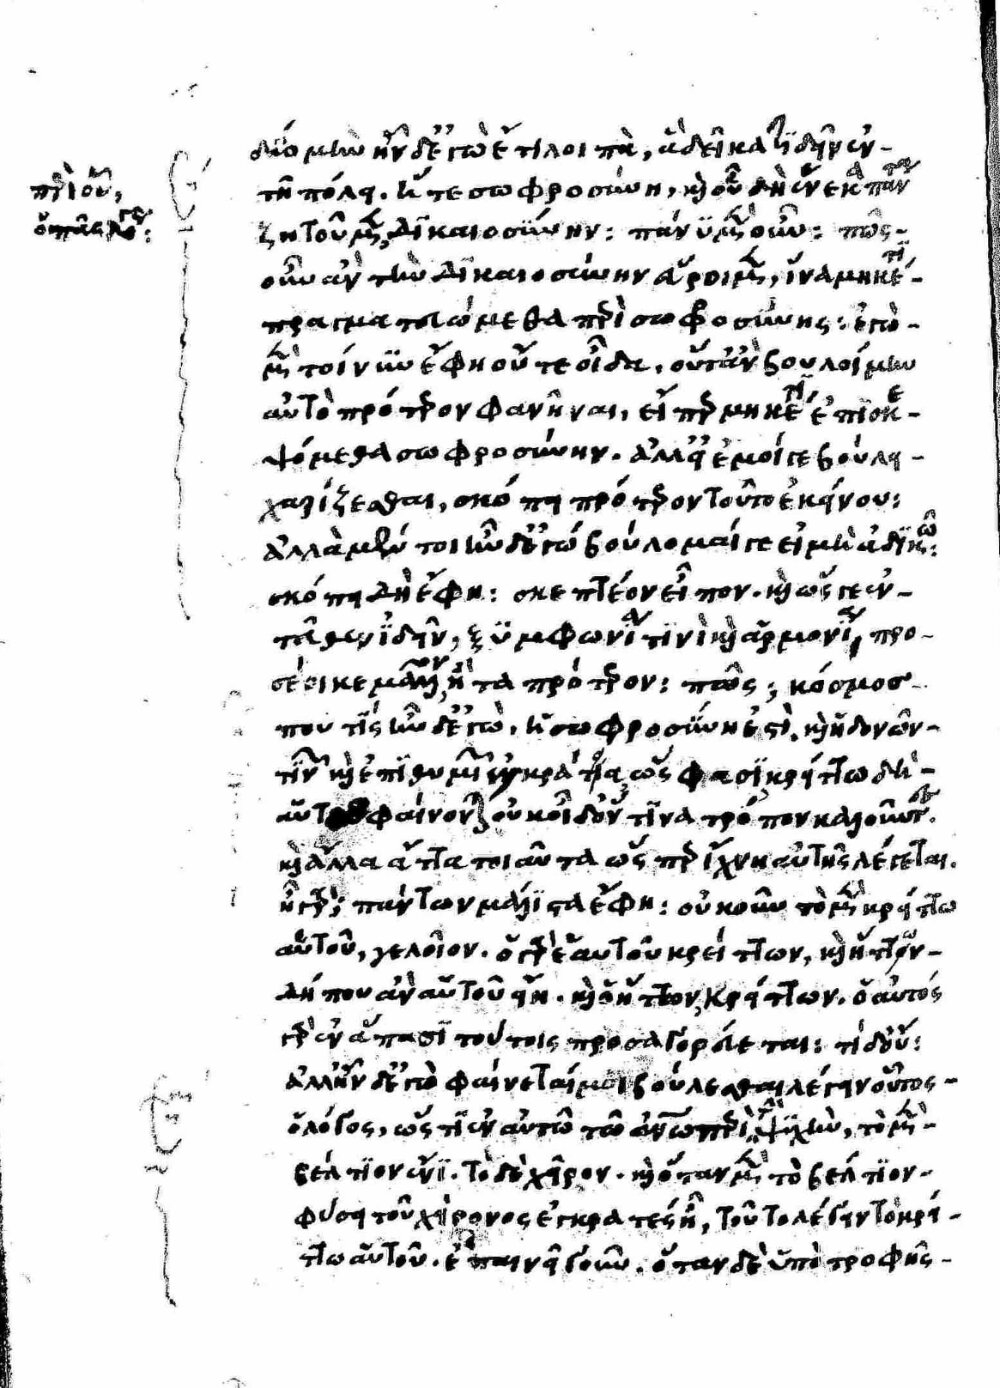 περὶ οὗ,
ὁ πᾶς λόγος:
δύο μὴν ἦν δ' ἐγὼ ἔτι λοιπὰ, ἃ δεῖ κατιδεῖν ἐν
τῇ πόλει. ἥ τε σωφροσύνη, καὶ οὗ δὴ ἕνεκα πάντα
ζητοῦμεν, δικαιοσύνην: πάνυ μὲν οὖν: πῶς
οὖν ἂν τὴν δικαιοσύνην εὕροιμεν, ἵνα μηκέτι
πραγματευώμεθα περὶ σωφροσύνης: ἐγὼ
μὲν τοίνυν ἔφη οὔτε οἶδα, οὔτ' ἂν βουλοίμην
αὐτὸ πρότερον φανῆναι, εἴπερ μηκέτι ἐπισκε-
ψόμεθα σωφροσύνην. ἀλλ' εἰ ἐμοί γε βούλει
χαρίζεσθαι, σκόπει πρότερον τοῦτο ἐκείνου:
ἀλλὰ μέντοι ἦν δ' ἐγώ βούλομαί γε εἰ μὴ ἀδικῶ:
σκόπει δὴ ἔφη: σκεπτέον εἶπον. καὶ ὥς γε ἐν-
τεῦθεν ἰδεῖν, ξυμφωνίᾳ τινὶ καὶ ἁρμονίᾳ προ-
σέοικε μᾶλλον ἢ τὰ πρότερον: πῶς; κόσμος
που τίς ἦν δ' ἐγὼ, ἡ σωφροσύνη ἐστὶ, καὶ ἡδονῶν
τινῶν καὶ ἐπιθυμιῶν ἐγκράτεια, ὥς φασι κρείττω δὴ
αὑτοῦ φαίνονται οὐκ οἶδ' ὅντινα τρόπον καλοῦντες.
καὶ ἄλλα ἄττα τοιαῦτα ὥσπερ ἴχνη αὐτῆς λέγεται.
ἦ γάρ; πάντων μάλιστα ἔφη: οὐκοῦν τὸ μὲν κρείττω
αὑτοῦ, γελοῖον. ὁ γὰρ ἑαυτοῦ κρείττων, καὶ ἥττων
δήπου ἂν αὑτοῦ εἴη. καὶ ὁ ἥττων, κρείττων. ὁ αὐτὸς
γὰρ ἐν ἅπασι τούτοις προσαγορεύεται: τί δ' οὔ:
ἀλλ' ἦν δ' ἐγὼ φαίνεταί μοι βούλεσθαι λέγειν οὗτος
ὁ λόγος, ὥς τι ἐν αὐτῷ τῷ ἀνθρώπῳ περὶ τὴν ψυχὴν, τὸ μὲν
βέλτιον ἔνι. τὸ δὲ χεῖρον. καὶ ὅταν μὲν τὸ βέλτιον
φύσει τοῦ χείρονος ἐγκρατὲς ᾖ, τοῦτο λέγειν τὸ κρεί-
ττω αὑτοῦ. ἐπαινεῖ γοῦν. ὅταν δὲ ὑπὸ τροφῆς